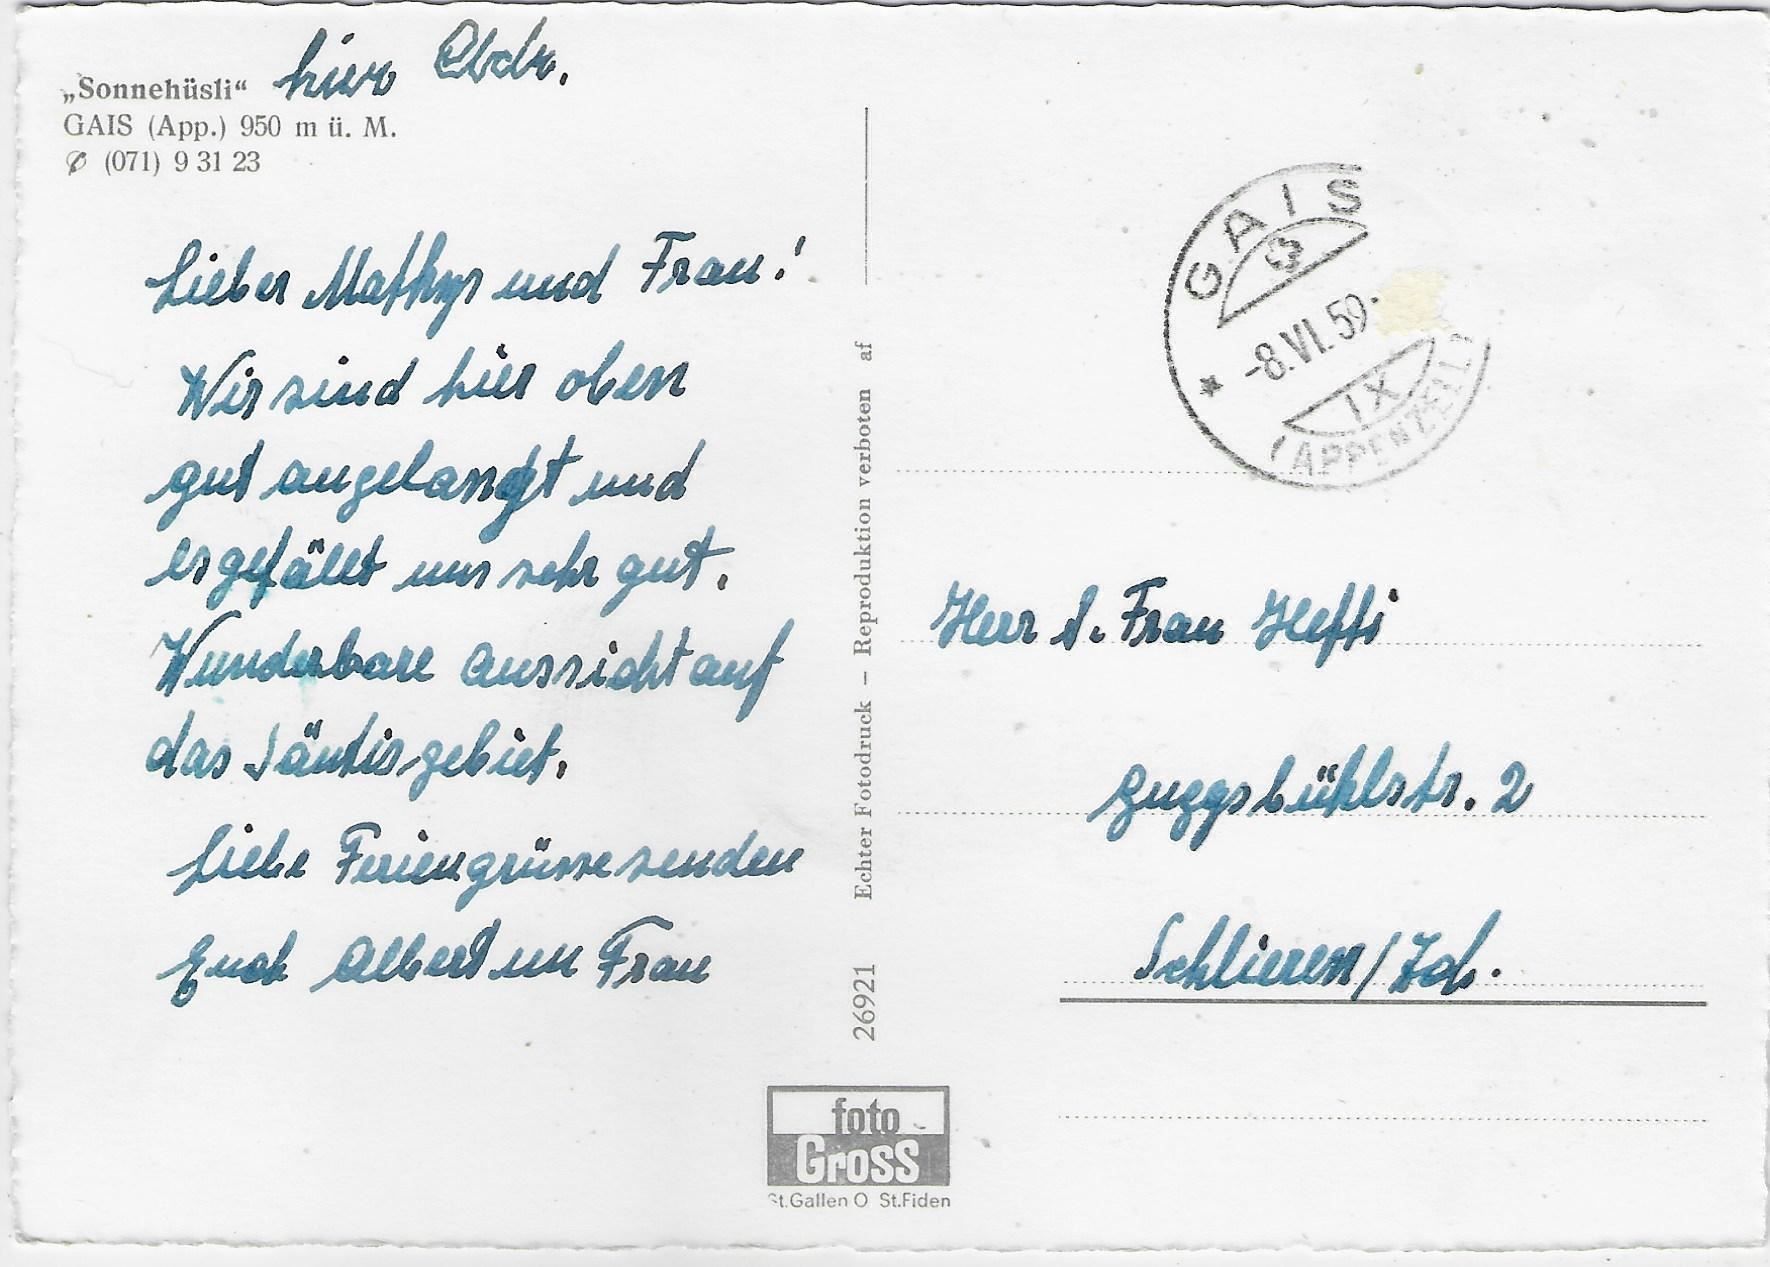 hier Adr.
„Sonnehüsli“
GAIS (App.) 950 m ü. M.
✆ (071) 9 31 23
Lieber Mathys und Frau!
Wir sind hier oben
gut angelangt und
es gefällt uns sehr gut.
Wunderbare Aussicht auf
das Säntisgebiet.
Liebe Feriengrüsse senden
Euch Albert un Frau
Echter Fotodruck – Reproduktion verboten af
26921
foto
Gross
St.Gallen O St.Fiden
GAIS
3
-8.VI.59.
IX
(APPENZELL)
Herr S. Frau Hefti
Guggsbühlstr. 2
Schlieren/Zch.